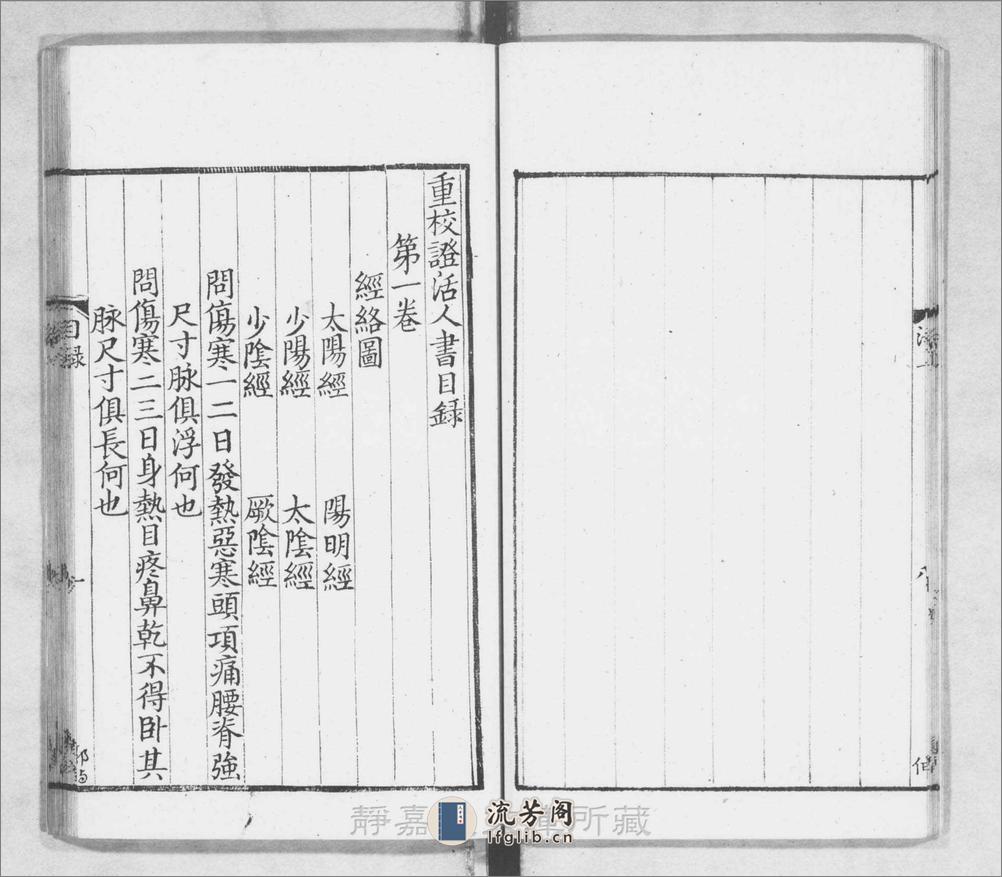 重校證活人書目録
第一卷
經絡圖
太陽經　陽明經
少陽經　太陰經
少陰經　厥陰經
問傷寒一二日發熱惡寒頭項痛腰脊強
尺寸脉俱浮何也
問傷寒二三日身熱目疼鼻乾不得卧其
脉尺寸俱長何也
目録
一
靜嘉
所藏
流芳阁
lfglib.cn